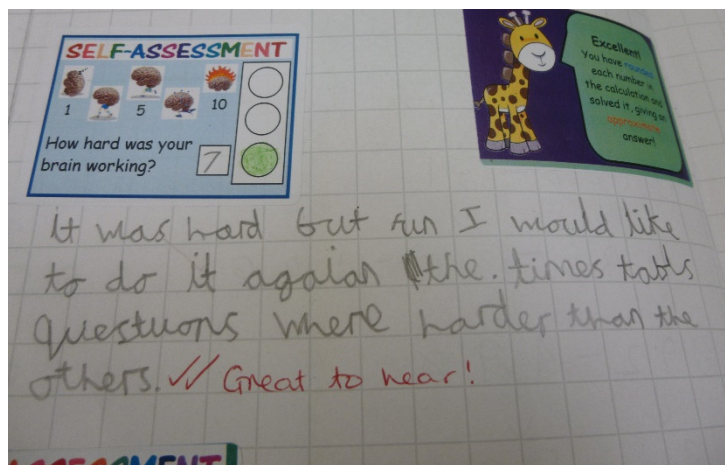 SELF-ASSESSMENT
1 5 10
How hard was your
brain working? 7
Excellent!
You have rounded
each number in
the calculation and
solved it, giving an
approximate
answer!
it was hard but fun I would like
to do it agaian the. times tabls
questuons where harder than the
others. Great to hear!
ASSESSMENT